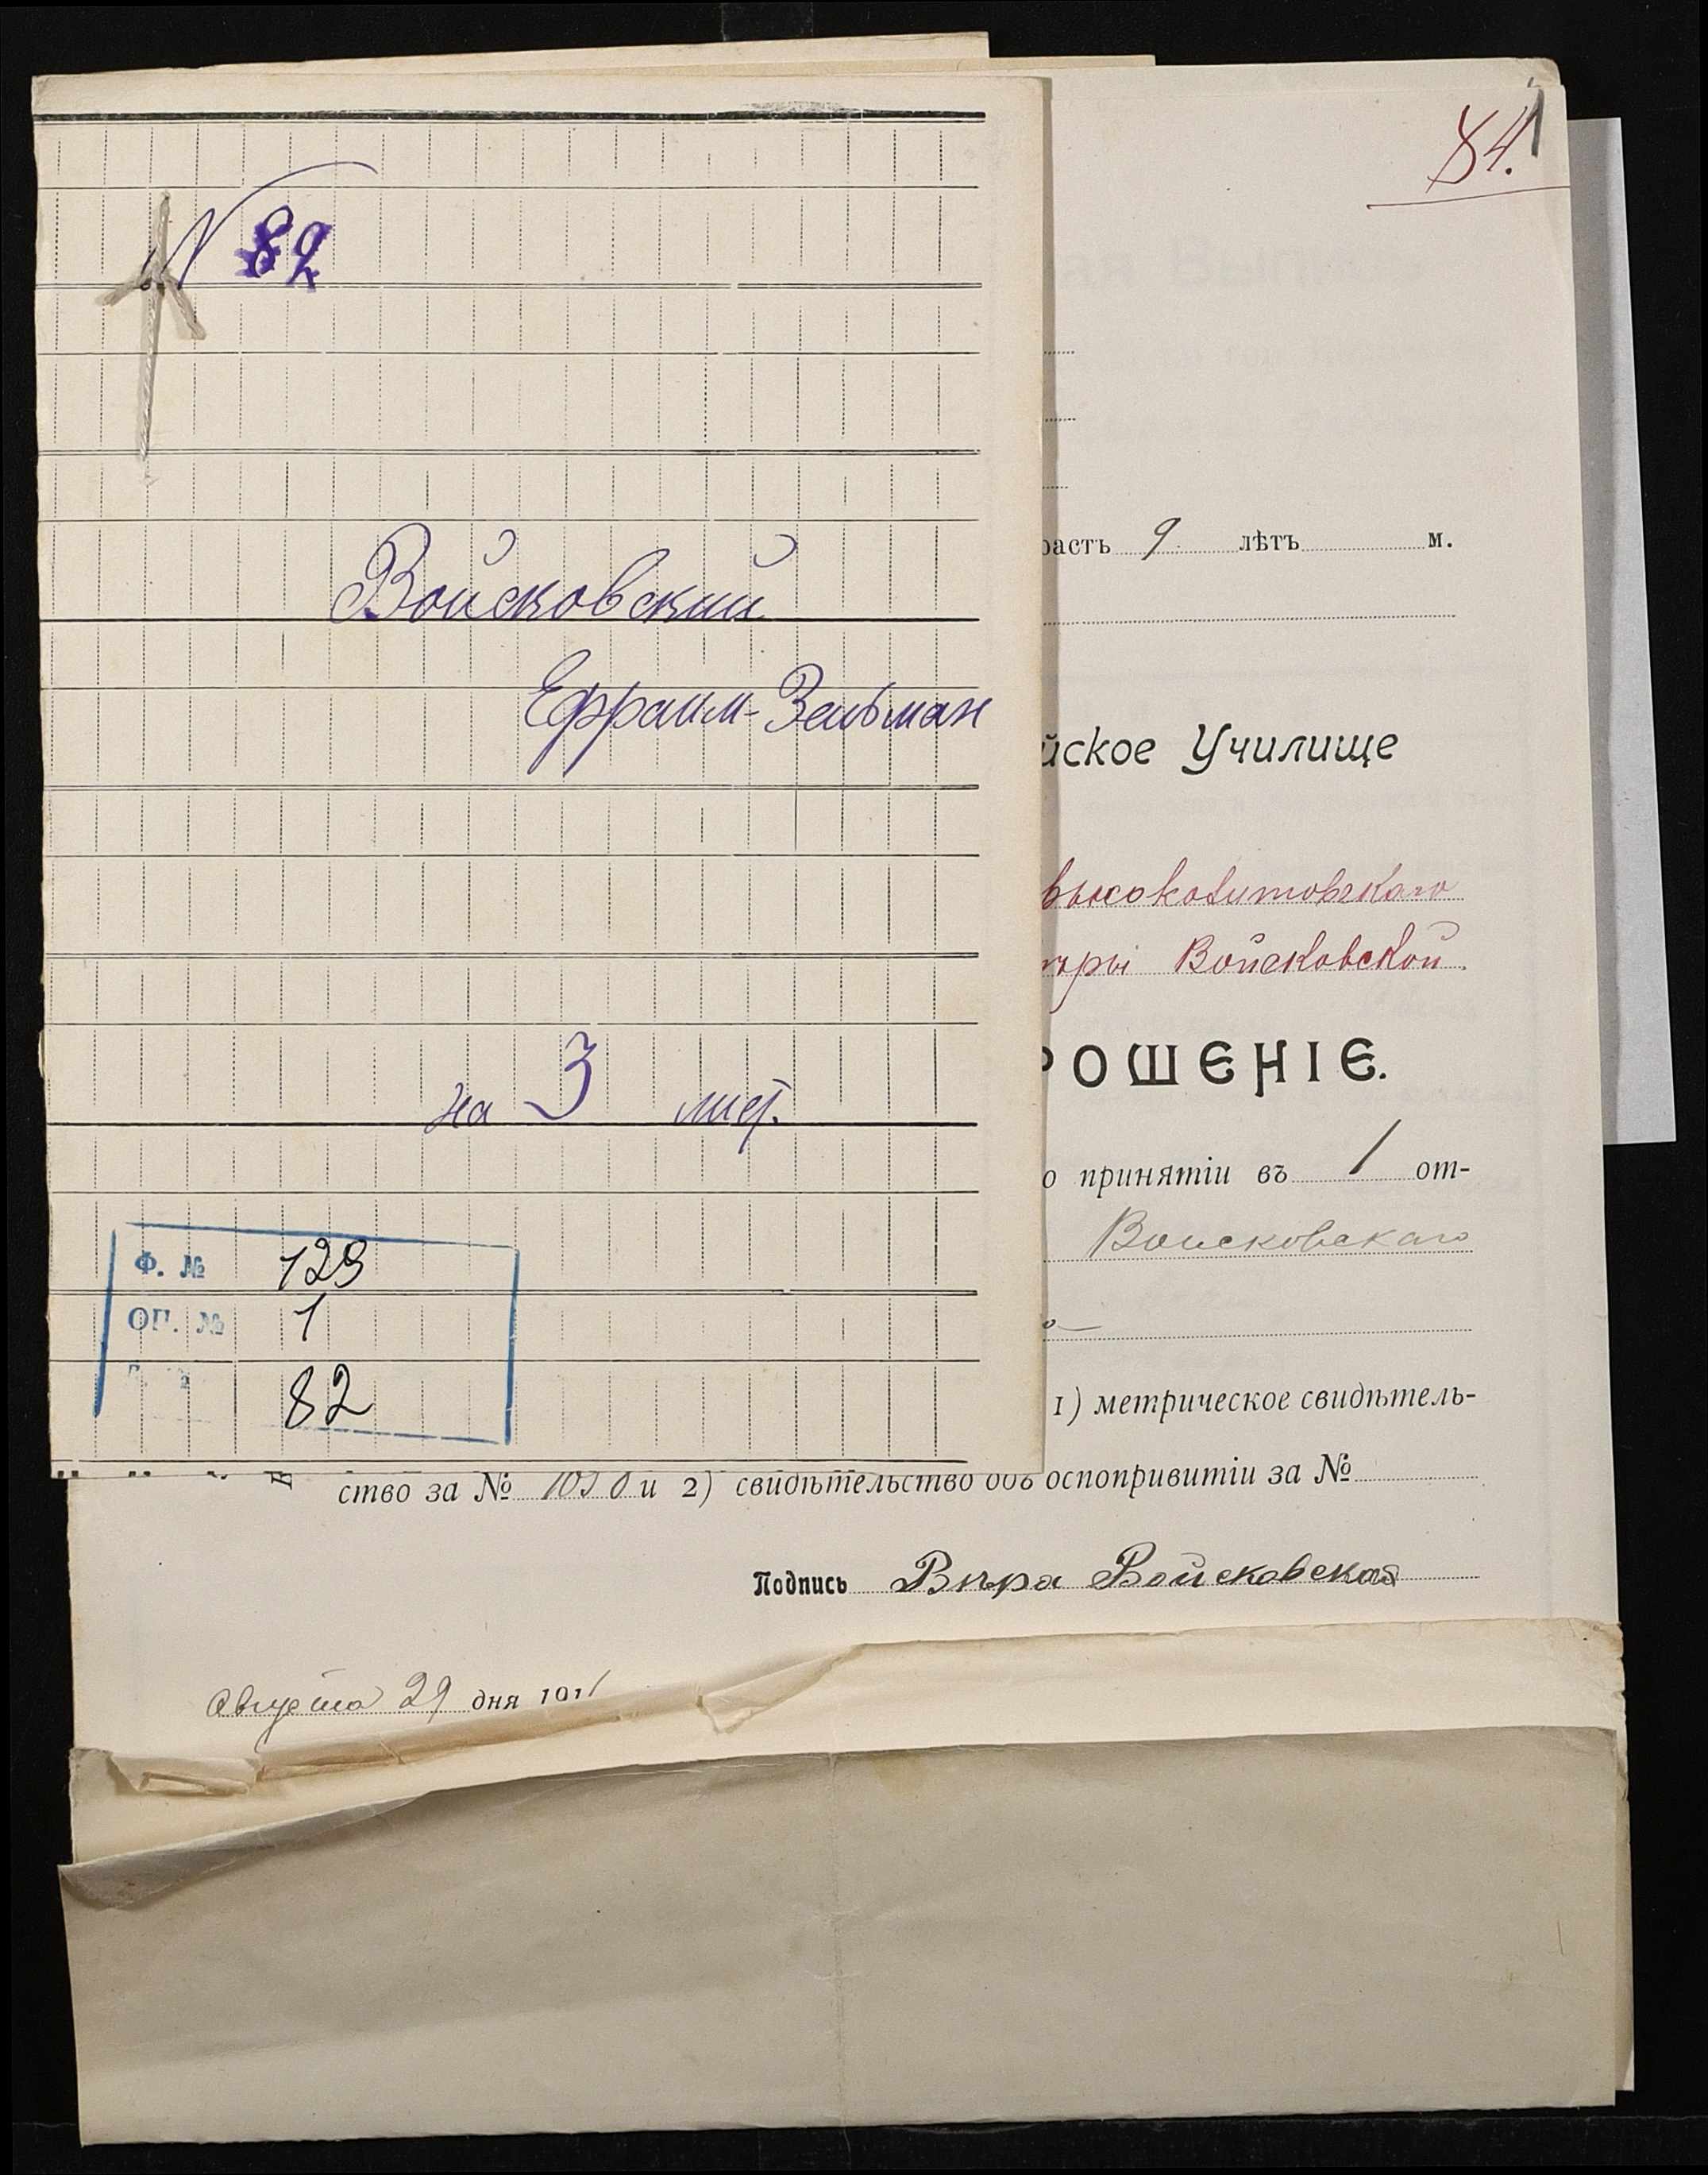 N 82
Войсковский
Ефраим-Зельман
на 3 лист.
Ф. № 129
ОП. № 1
82
84.
1
растъ 9 лѣтъ м.
йское Училище
высоколитовскаго
ѣры Войсковской.
РОШЕНІЕ.
о принятіи въ 1 от-
Войсковскаго
1) метрическое свидѣтель-
ство за № и 2) свидѣтельство объ оспопривитіи за №
Подпись Вѣра Войсковская
Августа 29 дня 1911